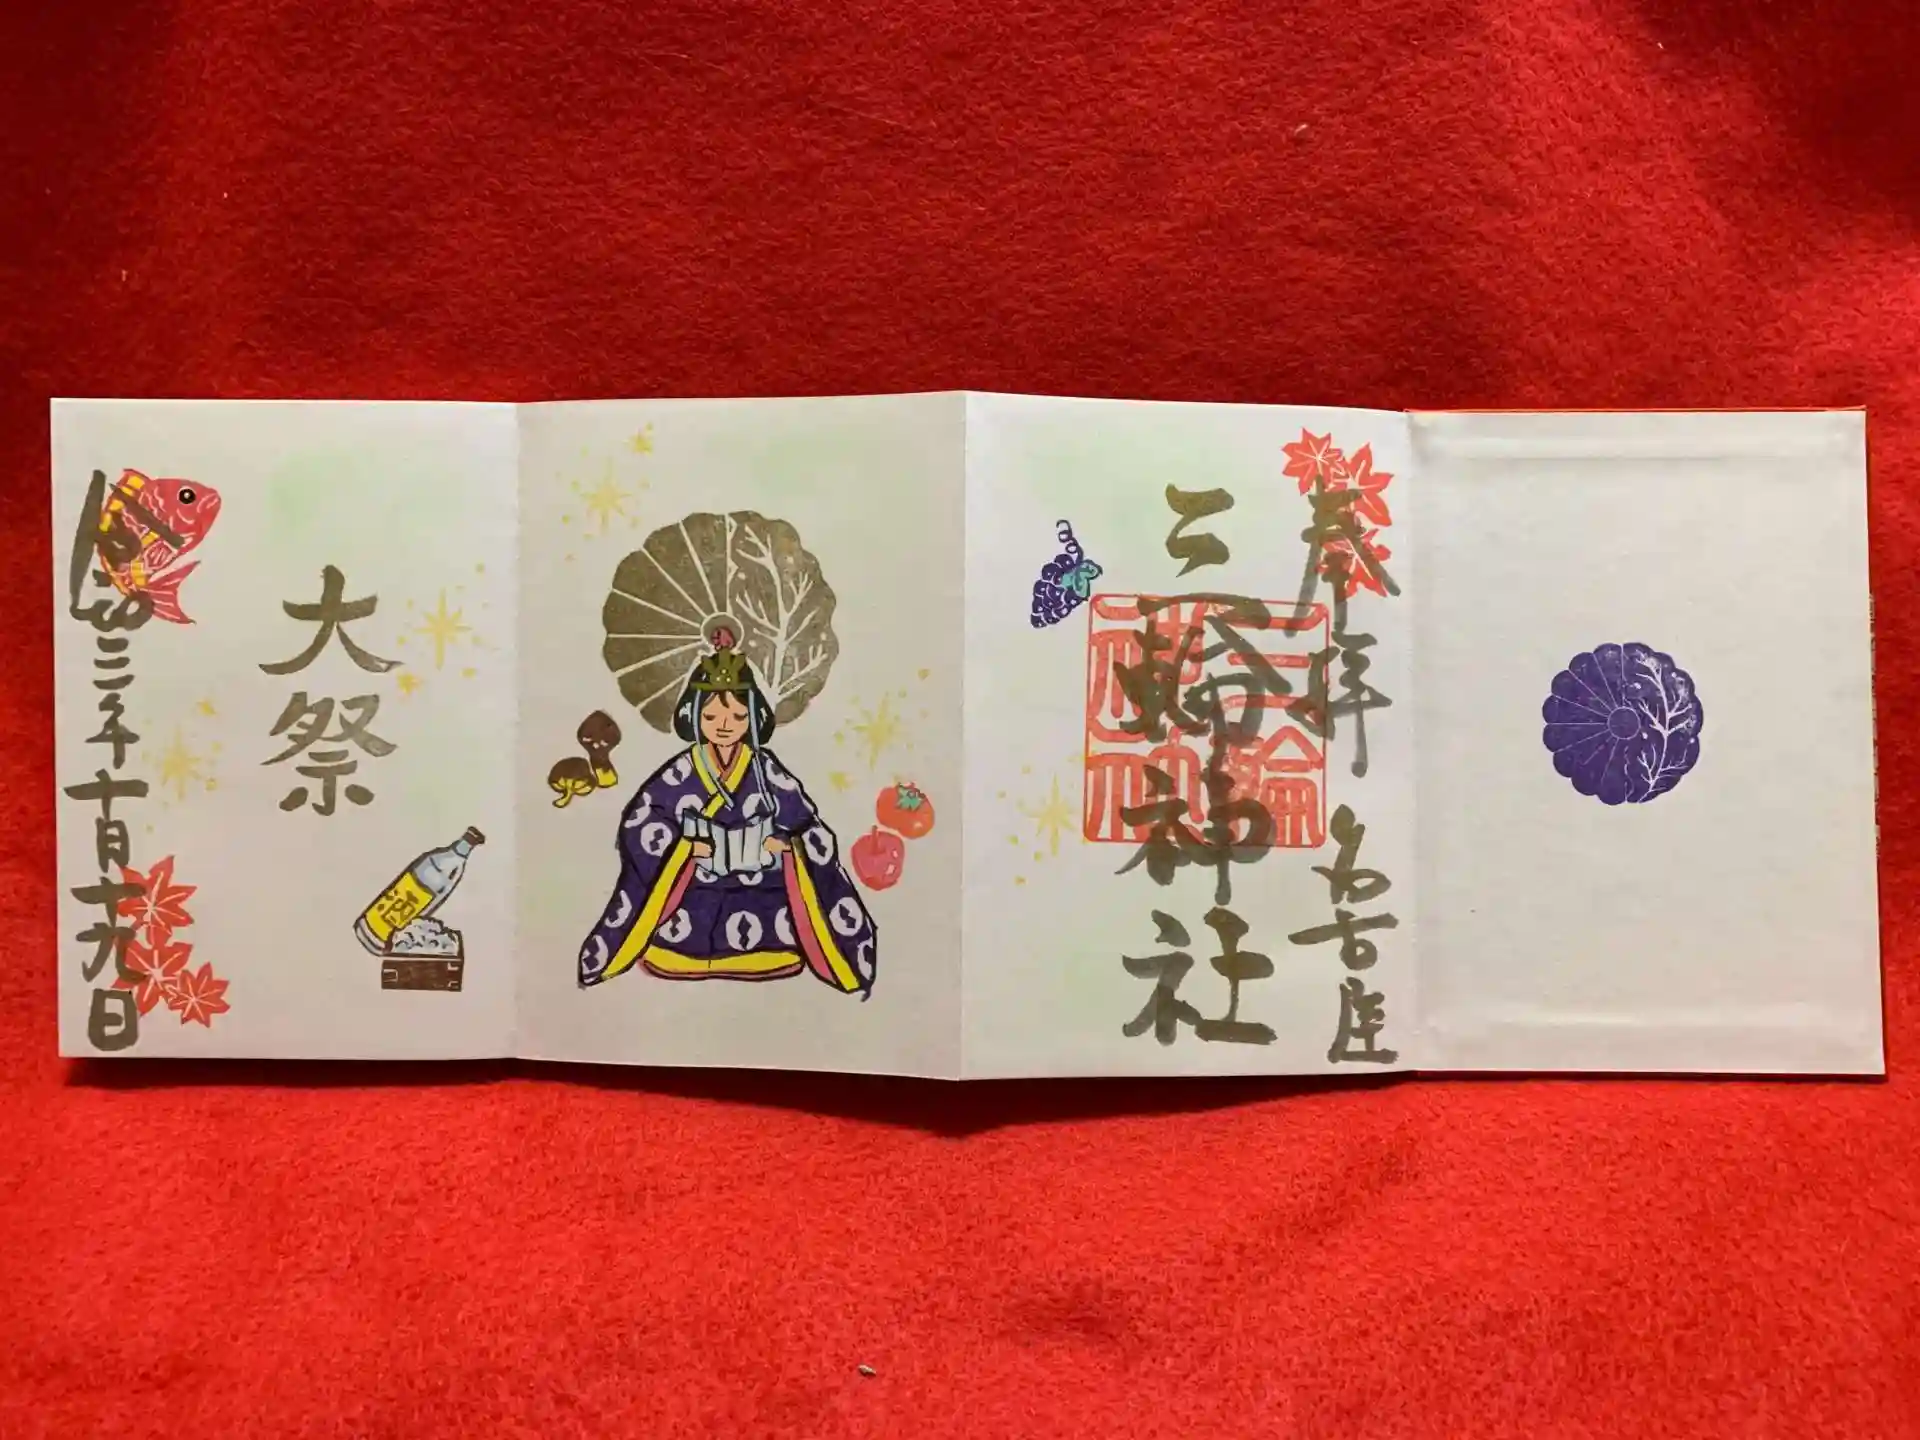 奉拝 名古屋
三輪神社
三輪神社
大祭
令和三年十月十九日
祝